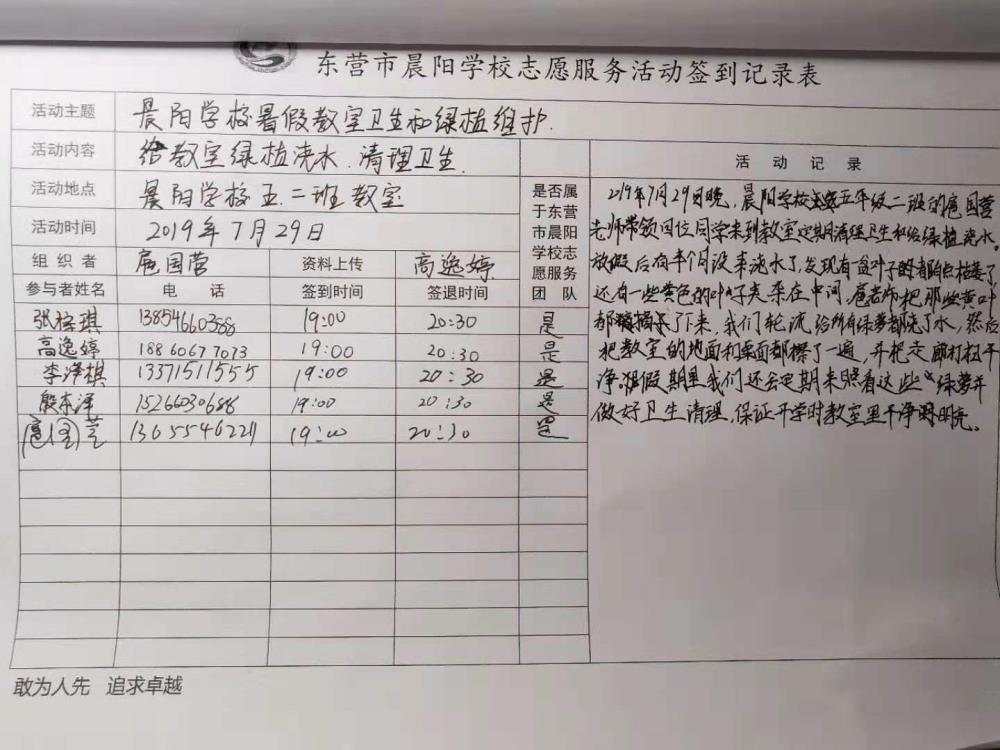 东营市晨阳学校志愿服务活动签到记录表
活动主题 晨阳学校暑假教室卫生和绿植维护.
活动内容 给教室绿植浇水.清理卫生.
活动地点 晨阳学校五.二班教室
活动时间 2019年7月29日
组织者 扈国营 资料上传 高逸婷
参与者姓名 电话 签到时间 签退时间 是否属于东营市晨阳学校志愿服务团队
张 琪 13854660388 19:00 20:30 是
高逸婷 18860677073 19:00 20:30 是
李 棋 13371511555 19:00 20:30 是
殷 泽 15266030688 19:00 20:30 是
扈 芝 13655546221 19:00 20:30 是
活动记录
219年7月29日晚,晨阳学校五年级二班的扈国营
老师带领四位同学来到教室定期清理卫生和给绿植浇水.
放假后有半个月没来浇水了,发现有盆叶子都枯萎了
还有一些黄色的叶子夹杂在中间,扈老师把那些黄叶
都摘了下来,我们轮流给所有绿萝都浇了水,然后
把教室的地面和桌面都擦了一遍,并把走廊打扫干
净.暑假期里我们还会定期来照看这些绿萝并
做好卫生清理,保证开学时教室里干净明亮。
敢为人先 追求卓越